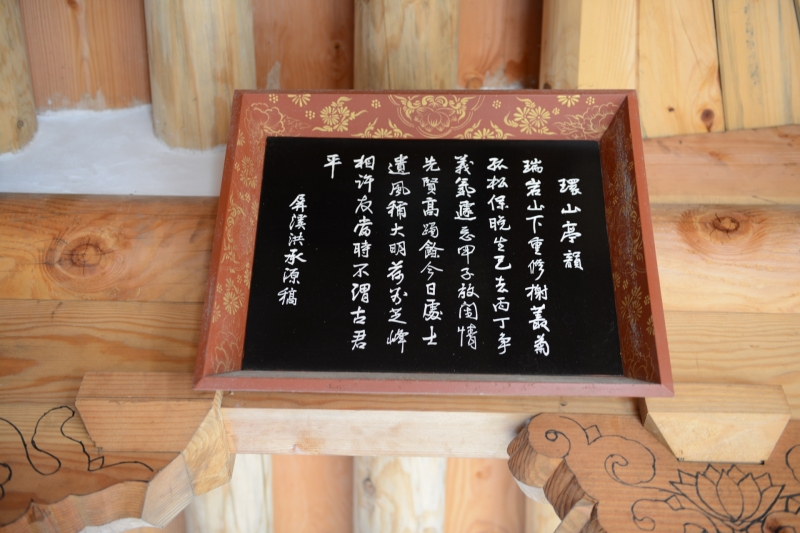 環山亭韻
瑞岩山下重修榭叢菊
孤松保晩生已去丙丁爭
義氣遲忘甲子放閒情
先賢高躅餘今日處士
遺風稱大明荷老芝峰
相許友當時不謂古君
平
屛溪洪承源稿